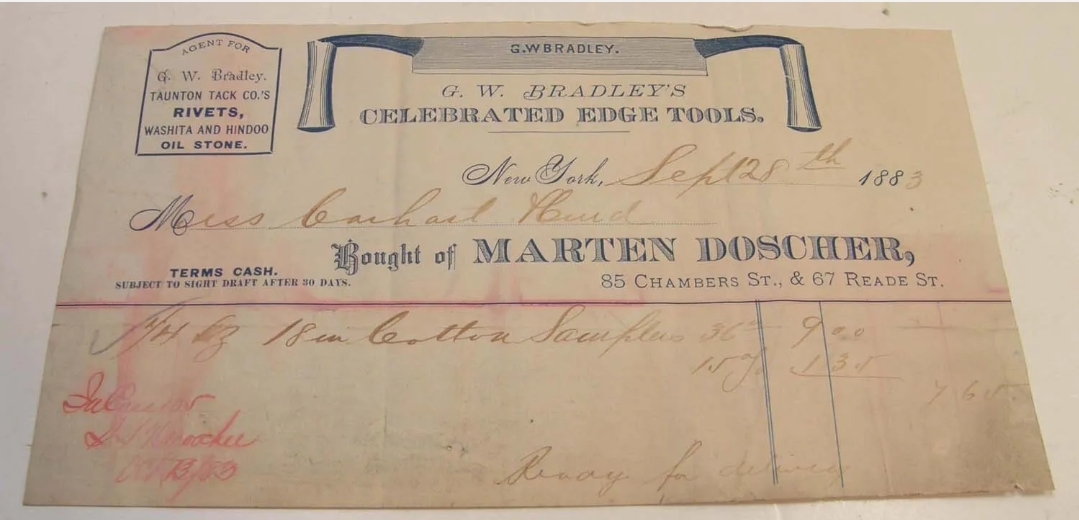 AGENT FOR
G. W. Bradley.
TAUNTON TACK CO.'S
RIVETS,
WASHITA AND HINDOO
OIL STONE.
G.W BRADLEY.
G. W. BRADLEY'S
CELEBRATED EDGE TOOLS.
New York, Sept 28th 1883
Carhart
Bought of MARTEN DOSCHER,
TERMS CASH.
SUBJECT TO SIGHT DRAFT AFTER 30 DAYS.
85 CHAMBERS ST., & 67 READE ST.
18 in Cotton Samplers 36 9 00
15 % 1 35
7 65
Ready for delivery